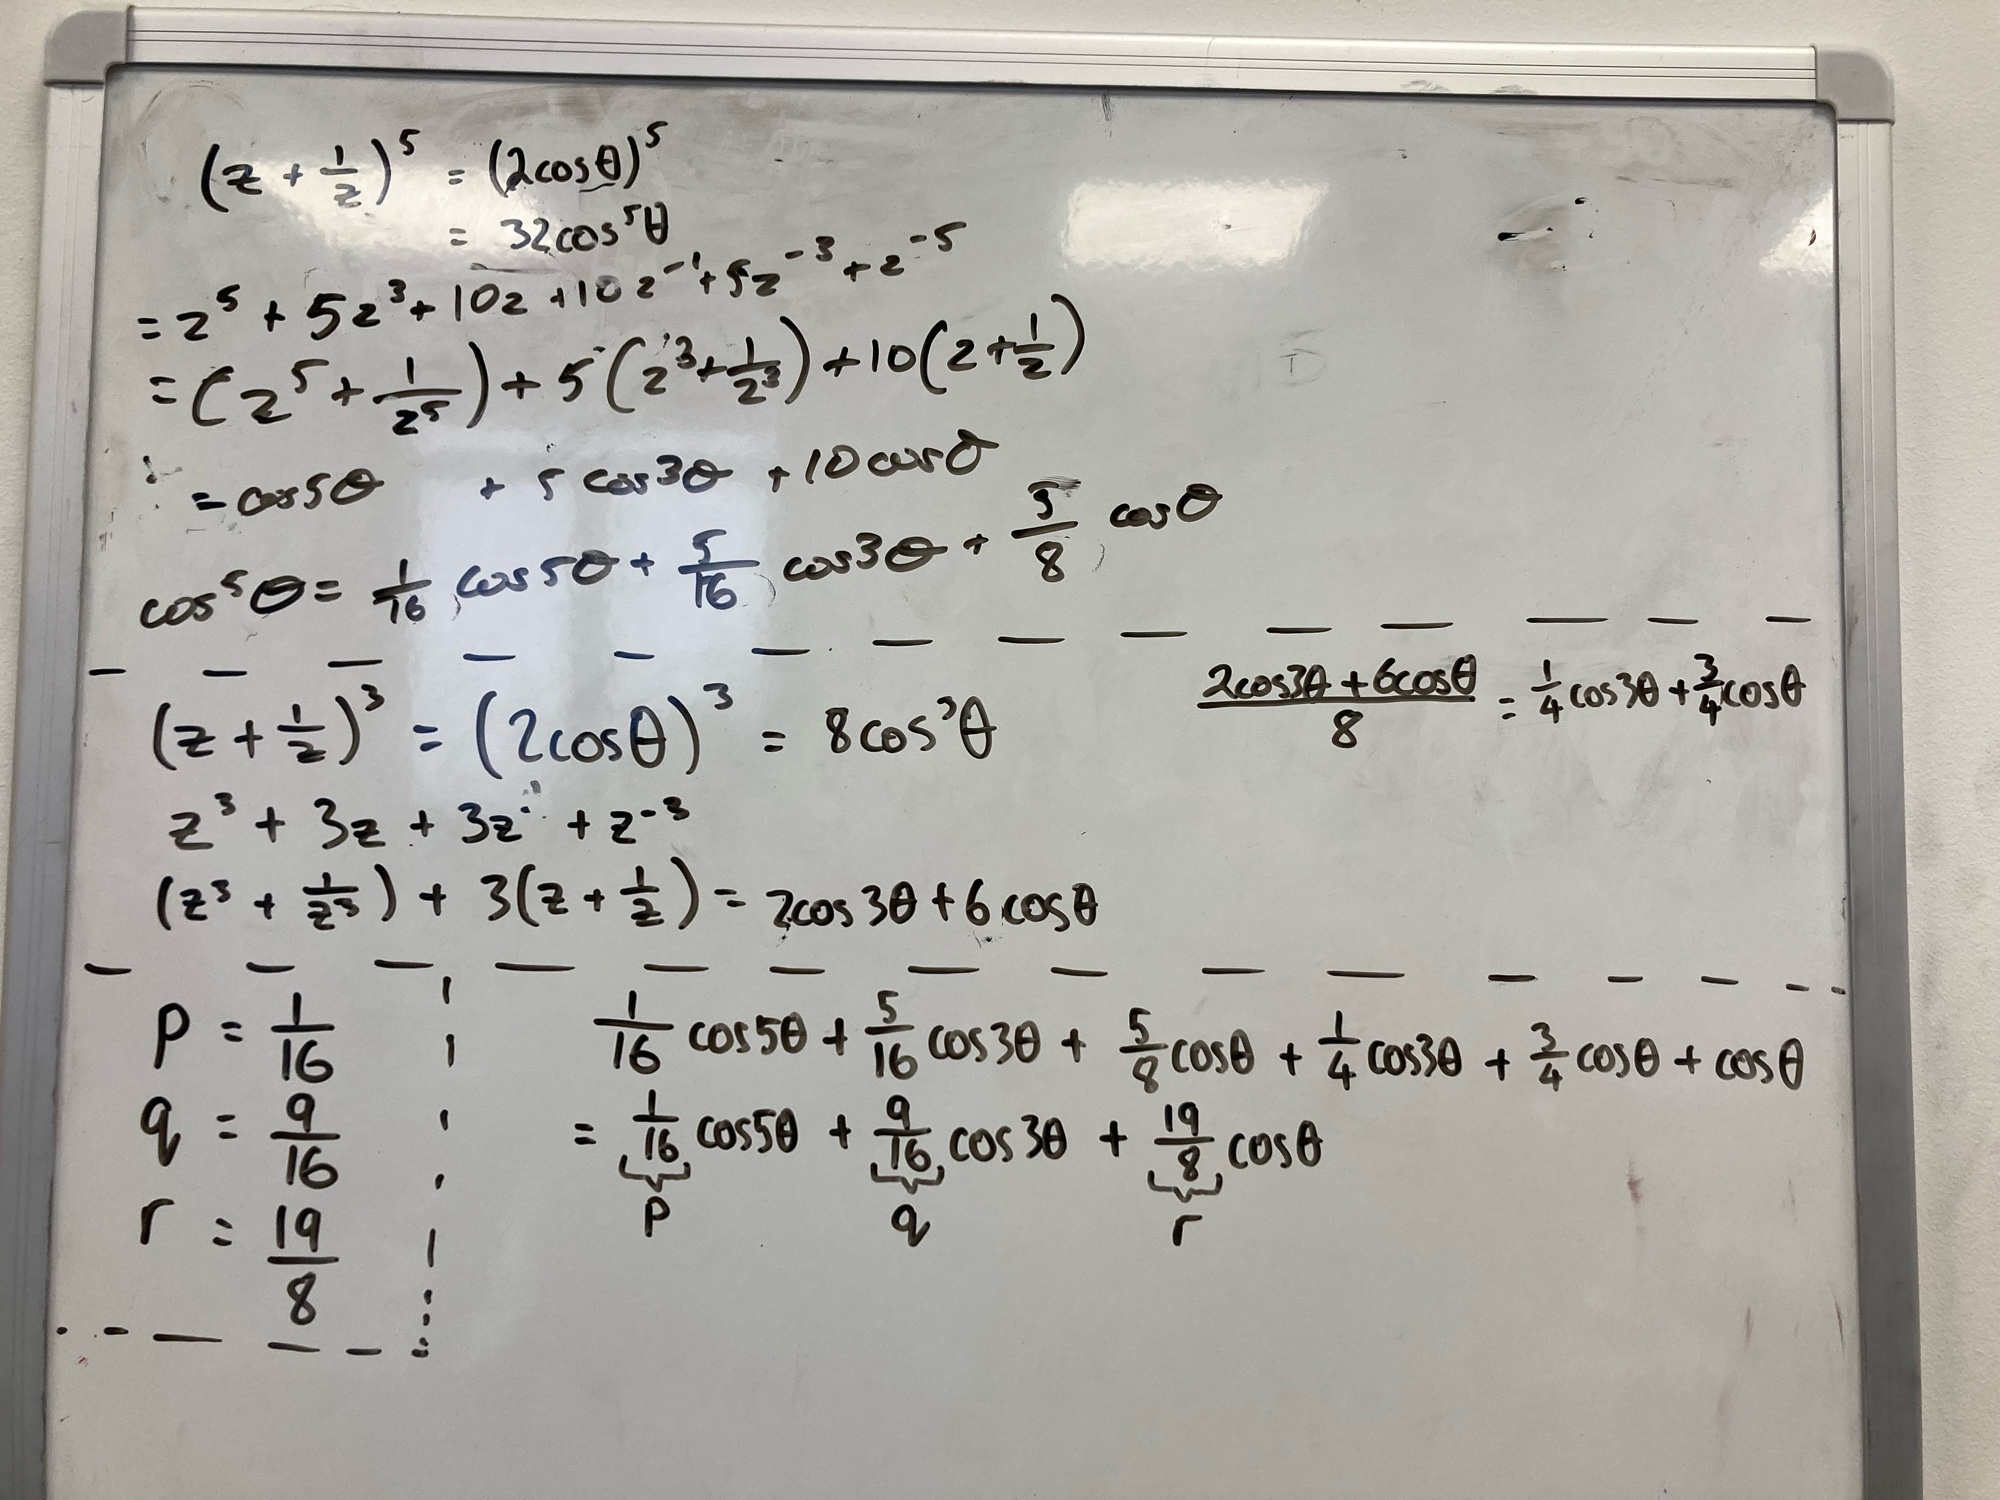 (z + 1/z)^5 = (2cosθ)^5
= 32cos^5θ
= z^5 + 5z^3 + 10z + 10z^-1 + 5z^-3 + z^-5
= (z^5 + 1/z^5) + 5(z^3 + 1/z^3) + 10(z + 1/z)
= cos5θ + 5 cos3θ + 10cosθ
cos^5θ = 1/16 cos5θ + 5/16 cos3θ + 5/8 cosθ
(z + 1/z)^3 = (2cosθ)^3 = 8cos^3θ
(2cos3θ + 6cosθ)/8 = 1/4 cos3θ + 3/4 cosθ
z^3 + 3z + 3z^-1 + z^-3
(z^3 + 1/z^3) + 3(z + 1/z) = 2cos3θ + 6cosθ
p = 1/16
q = 9/16
r = 19/8
1/16 cos5θ + 5/16 cos3θ + 5/8 cosθ + 1/4 cos3θ + 3/4 cosθ + cosθ
= 1/16 cos5θ + 9/16 cos3θ + 19/8 cosθ
p q r